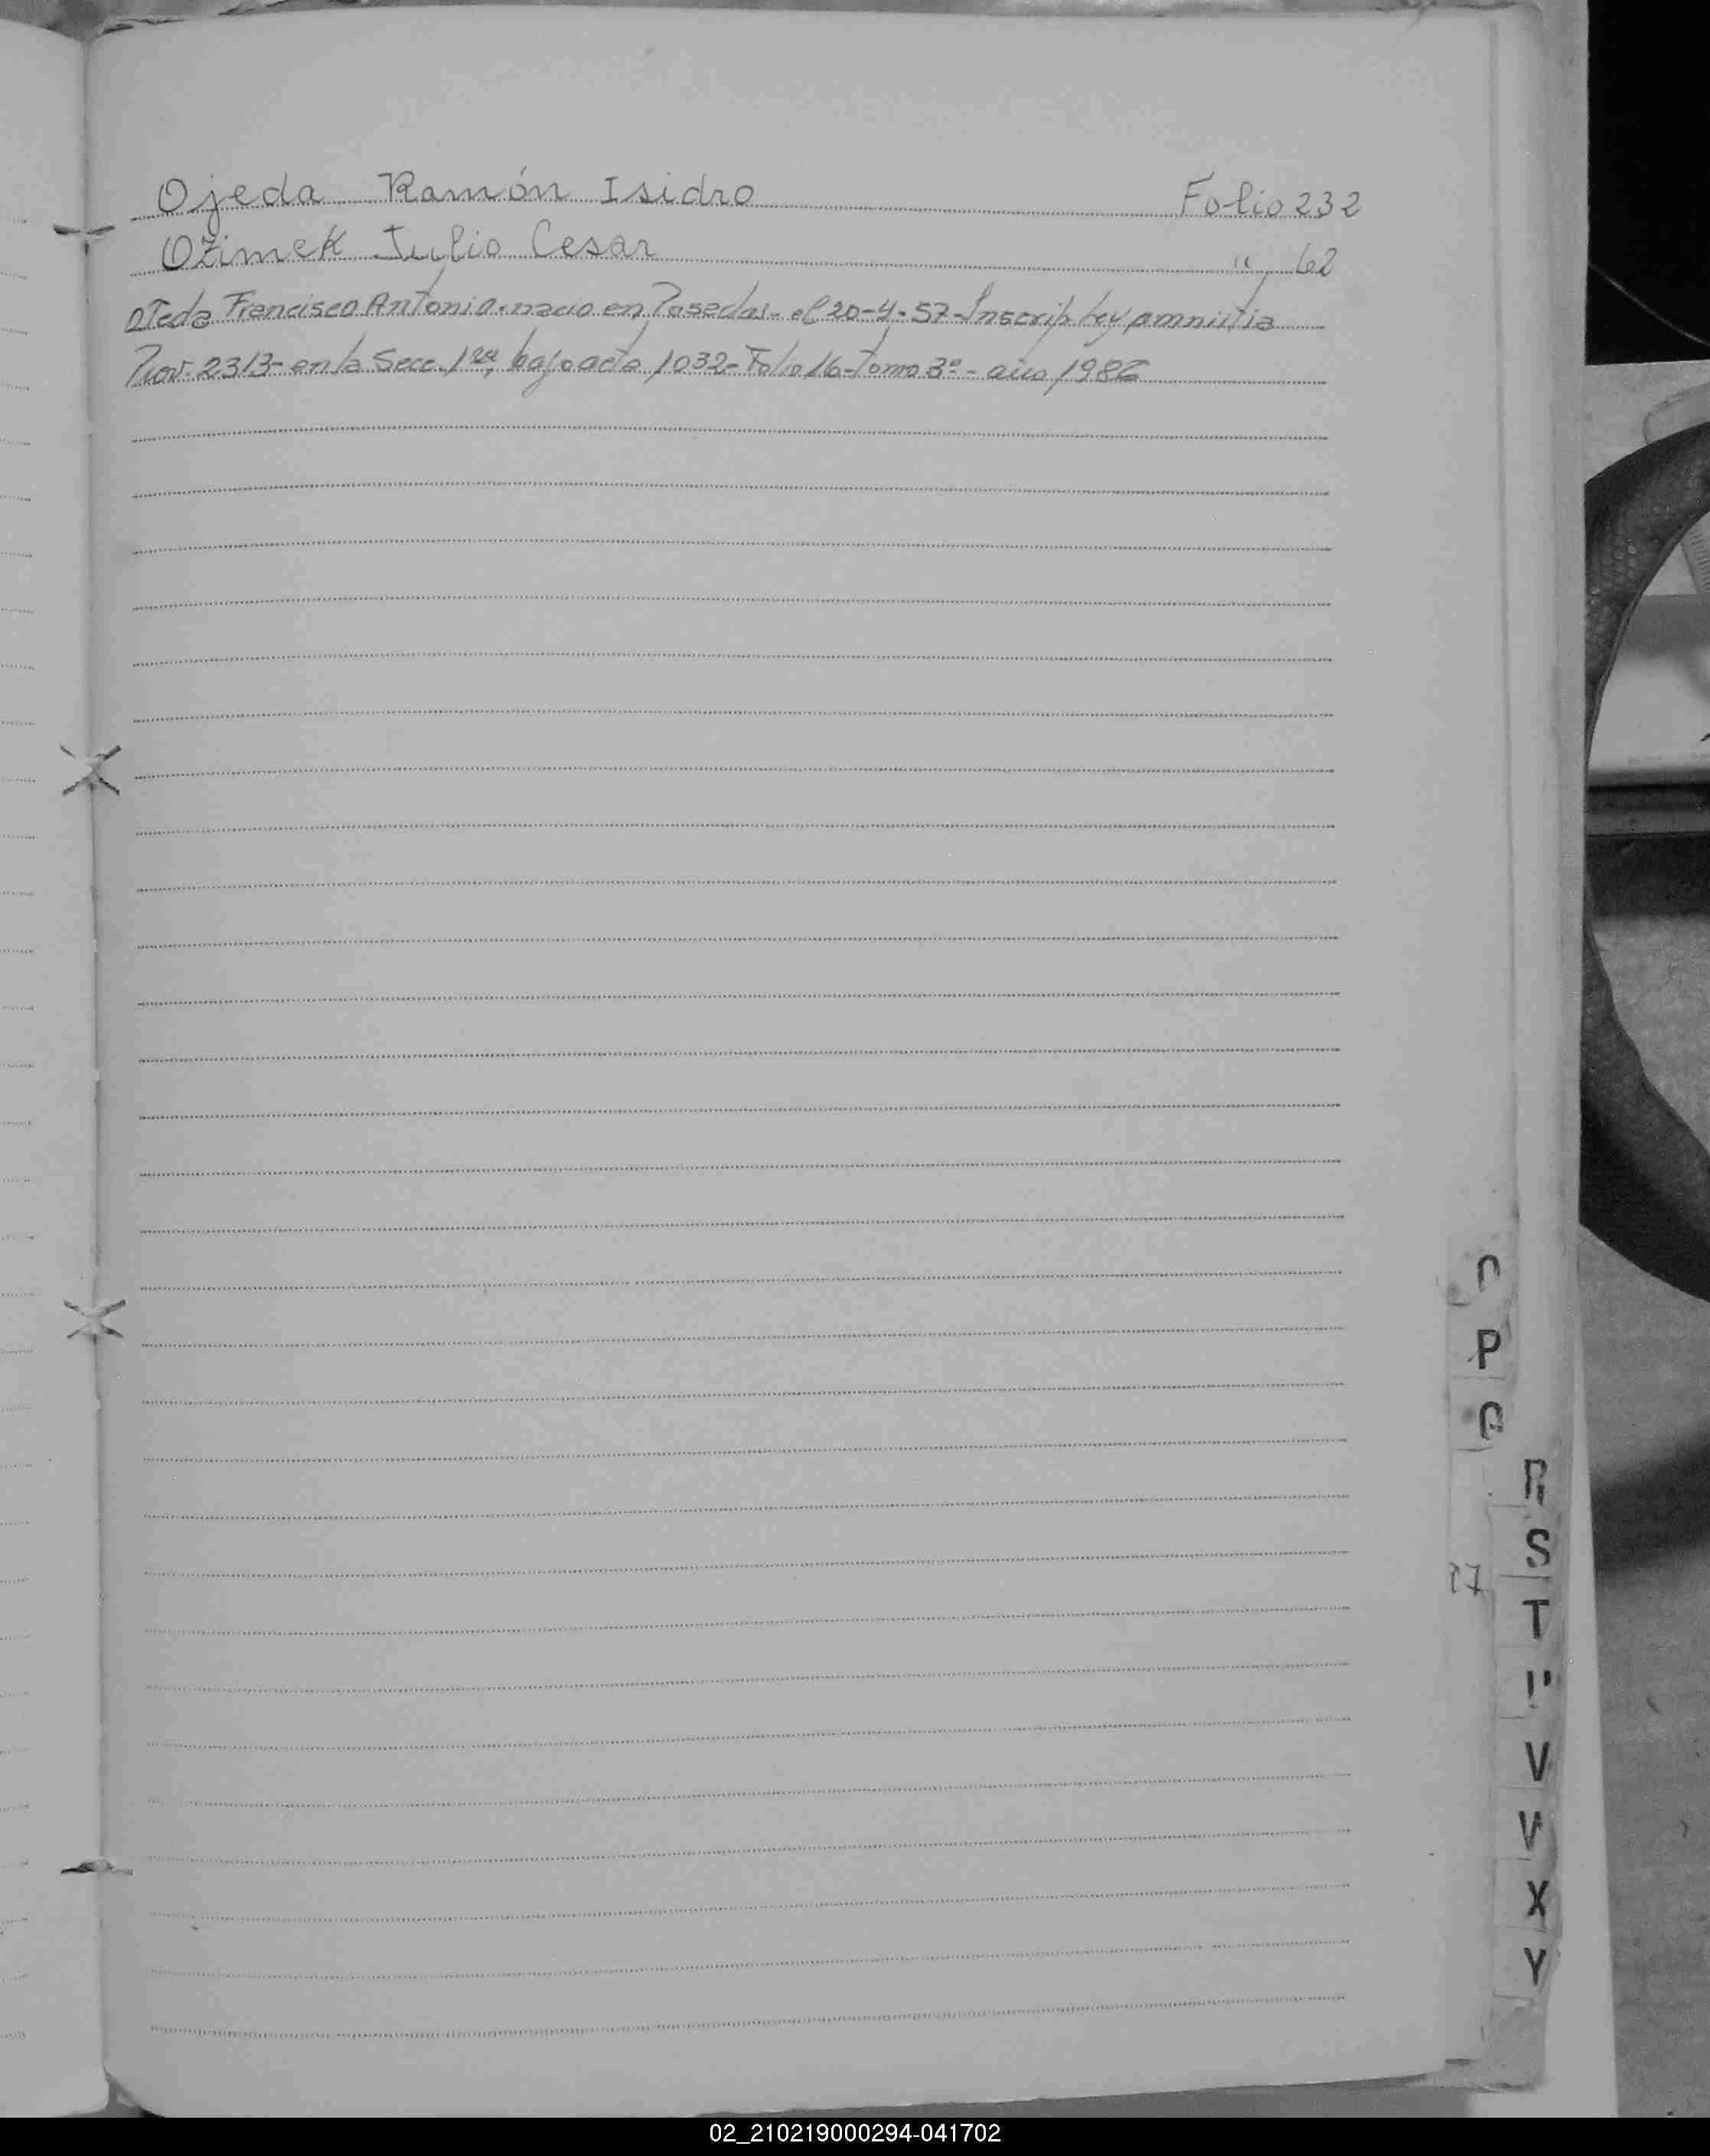 Ojeda Ramón Isidro Folio 232
Ozimek Julio Cesar " 62
Ojeda Francisco Antonio-nacio en Posadas-el 20-4-57-Inscrip Ley amnistia
Prov. 2313-en la Secc. 1ra, bajo acta 1032-Folio 16-Tomo 3º-año 1986
P
Q
R
S
27
T
V
W
X
Y
02_210219000294-041702